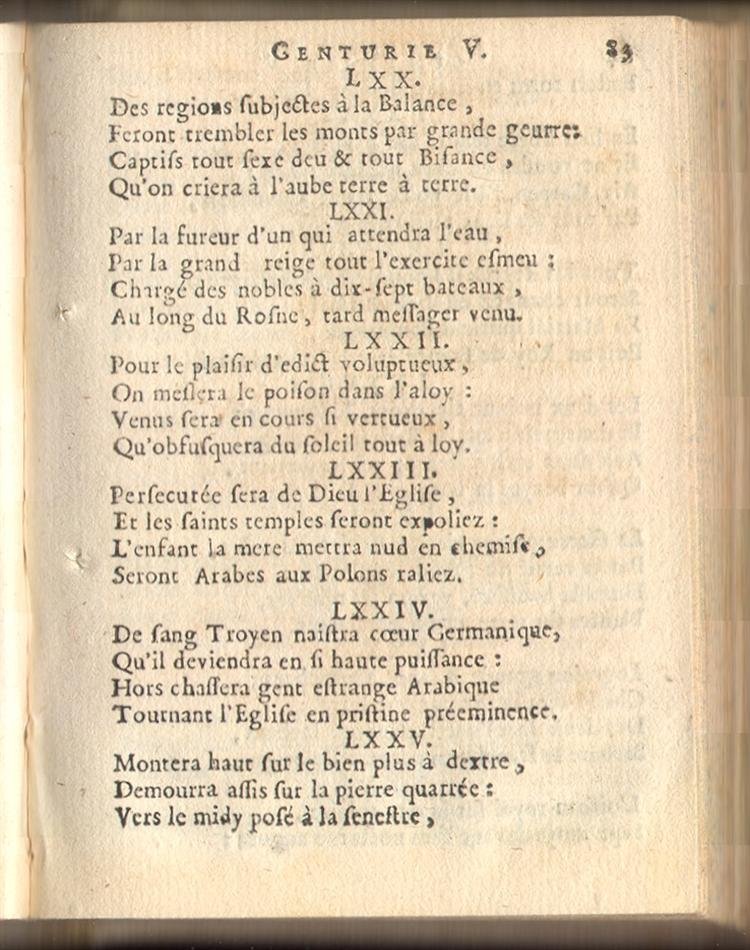 CENTURIE V. 83
LXX.
Des regions ſubjectes à la Balance ,
Feront trembler les monts par grande geurre:
Captifs tout ſexe deu & tout Biſance ,
Qu'on criera à l'aube terre à terre.
LXXI.
Par la fureur d'un qui attendra l'eau ,
Par la grand reige tout l'exercite eſmeu :
Chargé des nobles à dix-ſept bateaux ,
Au long du Roſne , tard meſſager venu.
LXXII.
Pour le plaiſir d'edict voluptueux ,
On meſlera le poiſon dans l'aloy :
Venus ſera en cours ſi vertueux ,
Qu'obfuſquera du ſoleil tout à loy.
LXXIII.
Perſecutée ſera de Dieu l'Egliſe ,
Et les ſaints temples ſeront expoliez :
L'enfant la mere mettra nud en chemiſe ,
Seront Arabes aux Polons raliez.
LXXIV.
De ſang Troyen naiſtra cœur Germanique,
Qu'il deviendra en ſi haute puiſſance :
Hors chaſſera gent eſtrange Arabique
Tournant l'Egliſe en priſtine préeminence.
LXXV.
Montera haut ſur le bien plus à dextre ,
Demourra aſſis ſur la pierre quarrée :
Vers le midy poſé à la ſeneſtre ,